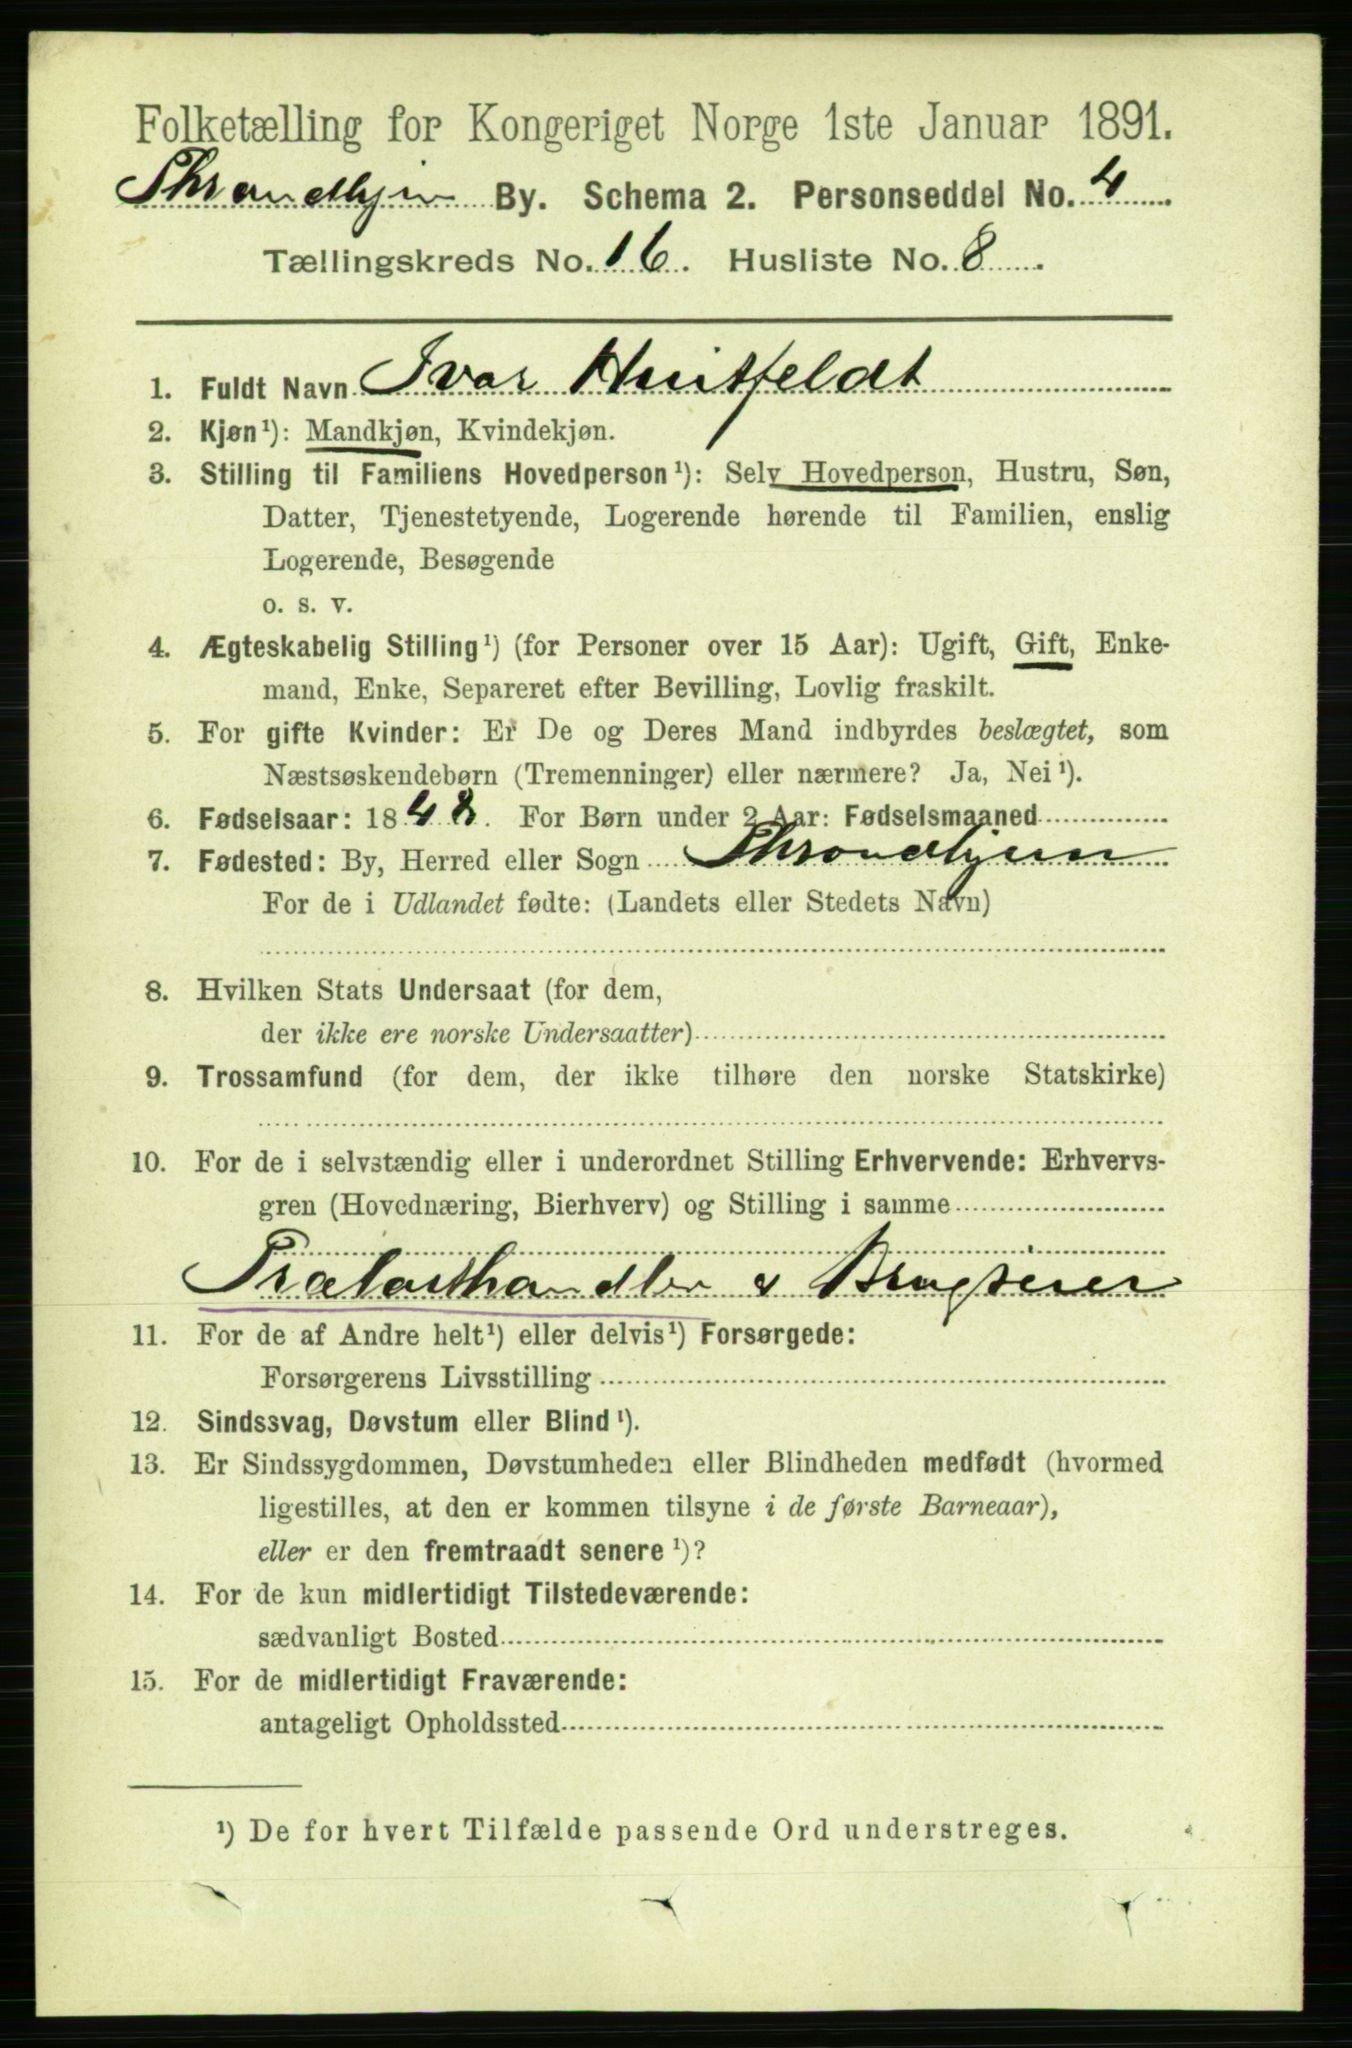 Folketælling for Kongeriget Norge 1ste Januar 1891.
Throndhjem By. Schema 2. Personseddel No. 4
Tællingskreds No. 16. Husliste No. 8.
1. Fuldt Navn Ivar Huitfeldt
2. Kjøn¹): Mandkjøn, Kvindekjøn.
3. Stilling til Familiens Hovedperson¹): Selv Hovedperson, Hustru, Søn,
Datter, Tjenestetyende, Logerende hørende til Familien, enslig
Logerende, Besøgende
o. s. v.
4. Ægteskabelig Stilling¹) (for Personer over 15 Aar): Ugift, Gift, Enke-
mand, Enke, Separeret efter Bevilling, Lovlig fraskilt.
5. For gifte Kvinder: Er De og Deres Mand indbyrdes beslægtet, som
Næstsøskendebørn (Tremenninger) eller nærmere? Ja, Nei¹).
6. Fødselsaar: 1848. For Børn under 2 Aar: Fødselsmaaned
7. Fødested: By, Herred eller Sogn Throndhjem
For de i Udlandet fødte: (Landets eller Stedets Navn)
8. Hvilken Stats Undersaat (for dem,
der ikke ere norske Undersaatter)
9. Trossamfund (for dem, der ikke tilhøre den norske Statskirke)
10. For de i selvstændig eller i underordnet Stilling Erhvervende: Erhvervs-
gren (Hovednæring, Bierhverv) og Stilling i samme
Trælasthandler & Brugseier
11. For de af Andre helt¹) eller delvis¹) Forsørgede:
Forsørgerens Livsstilling
12. Sindssvag, Døvstum eller Blind¹).
13. Er Sindssygdommen, Døvstumheden eller Blindheden medfødt (hvormed
ligestilles, at den er kommen tilsyne i de første Barneaar),
eller er den fremtraadt senere¹)?
14. For de kun midlertidigt Tilstedeværende:
sædvanligt Bosted
15. For de midlertidigt Fraværende:
antageligt Opholdssted
¹) De for hvert Tilfælde passende Ord understreges.